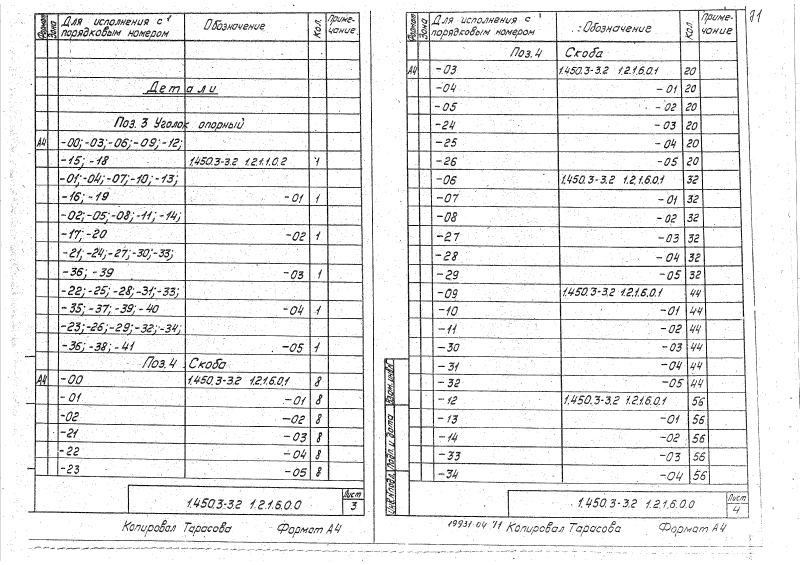 Формат Зона Для исполнения с порядковым номером Обозначение Кол. Примечание
Детали
Поз. 3 Уголок опорный
А4 -00; -03; -06; -09; -12;
-15; -18 1.450.3-3.2 1.2.1.1.0.2 1
-01; -04; -07; -10; -13;
-16; -19 -01 1
-02; -05; -08; -11; -14;
-17; -20 -02 1
-21; -24; -27; -30; -33;
-36; -39 -03 1
-22; -25; -28; -31; -33;
-35; -37; -39; -40 -04 1
-23; -26; -29; -32; -34;
-36; -38; -41 -05 1
Поз. 4 Скоба
А4 -00 1.450.3-3.2 1.2.1.6.0.1 8
-01 -01 8
-02 -02 8
-21 -03 8
-22 -04 8
-23 -05 8
1.450.3-3.2 1.2.1.6.0.0 Лист 3
Копировал Тарасова Формат А4
Формат Зона Для исполнения с порядковым номером Обозначение Кол. Примечание
Поз. 4 Скоба
А4 -03 1.450.3-3.2 1.2.1.6.0.1 20
-04 -01 20
-05 -02 20
-24 -03 20
-25 -04 20
-26 -05 20
-06 1.450.3-3.2 1.2.1.6.0.1 32
-07 -01 32
-08 -02 32
-27 -03 32
-28 -04 32
-29 -05 32
-09 1.450.3-3.2 1.2.1.6.0.1 44
-10 -01 44
-11 -02 44
-30 -03 44
-31 -04 44
-32 -05 44
-12 1.450.3-3.2 1.2.1.6.0.1 56
-13 -01 56
-14 -02 56
-33 -03 56
-34 -04 56
Инв.№подл. Подп. и дата Взам.инв.№
1.450.3-3.2 1.2.1.6.0.0 Лист 4
19931-04 71 Копировал Тарасова Формат А4